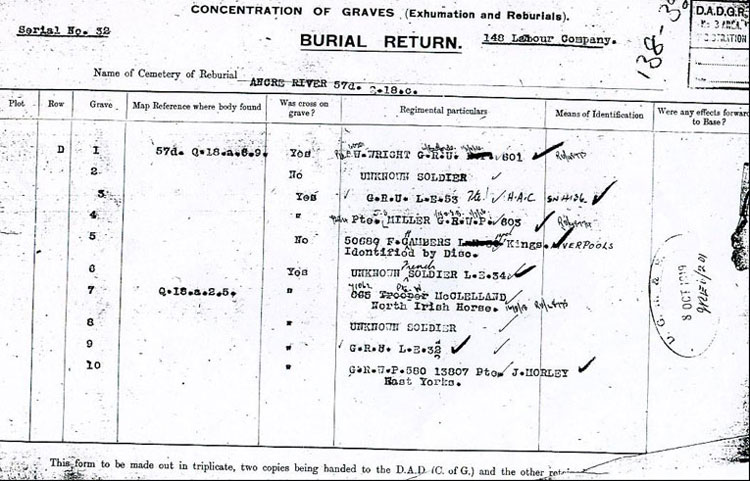 CONCENTRATION OF GRAVES (Exhumation and Reburials).
Serial No. 32
BURIAL RETURN.
148 Labour Company.
138-
D.A.D.G.R.
Name of Cemetery of Reburial ANCRE RIVER 57d. Q.18.c.
Plot Row Grave Map Reference where body found Was cross on grave? Regimental particulars Means of Identification Were any effects forward to Base?
D 1 57d. Q.18.a.6.9. Yes W.WRIGHT G.R.U. 601
2 No UNKNOWN SOLDIER
3 Yes G.R.U. L.E.53 H.A.C
4 " Pte. MILLER G.R.U.P. 603
5 No 50689 F.GAMBERS Kings. LIVERPOOLS
Identified by Disc.
6 Yes UNKNOWN French SOLDIER L.E.34.
7 Q.18.a.2.5. " 865 Trooper McCLELLAND
North Irish Horse.
8 " UNKNOWN SOLDIER
9 " G.R.U. L.E.32
10 " G.R.U.P.580 13807 Pte. J.HORLEY
East Yorks.
8 OCT 1919
This form to be made out in triplicate, two copies being handed to the D.A.D (C. of G.) and the other